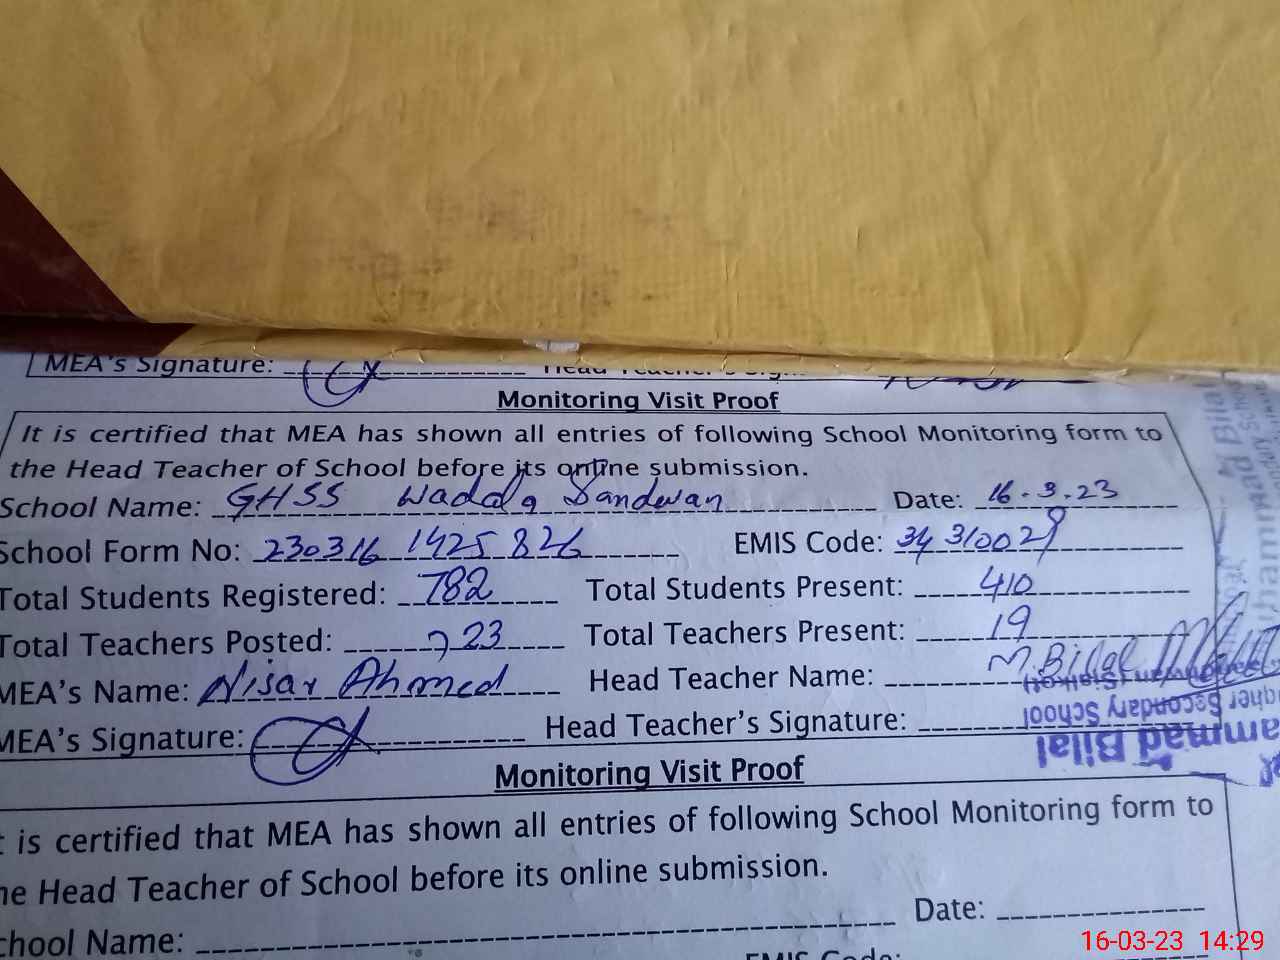 MEA's Signature:
Monitoring Visit Proof
It is certified that MEA has shown all entries of following School Monitoring form to
the Head Teacher of School before its online submission.
School Name: GHSS Wadala Sandwan Date: 16.3.23
School Form No: 230316 1425 826 EMIS Code: 34310029
Total Students Registered: 782 Total Students Present: 410
Total Teachers Posted: 23 Total Teachers Present: 19
MEA's Name: Nisar Ahmed Head Teacher Name: M.Bilal
MEA's Signature: Head Teacher's Signature:
Secondary School
Bilal
Monitoring Visit Proof
t is certified that MEA has shown all entries of following School Monitoring form to
he Head Teacher of School before its online submission.
chool Name: Date:
EMIS Code:
16-03-23 14:29